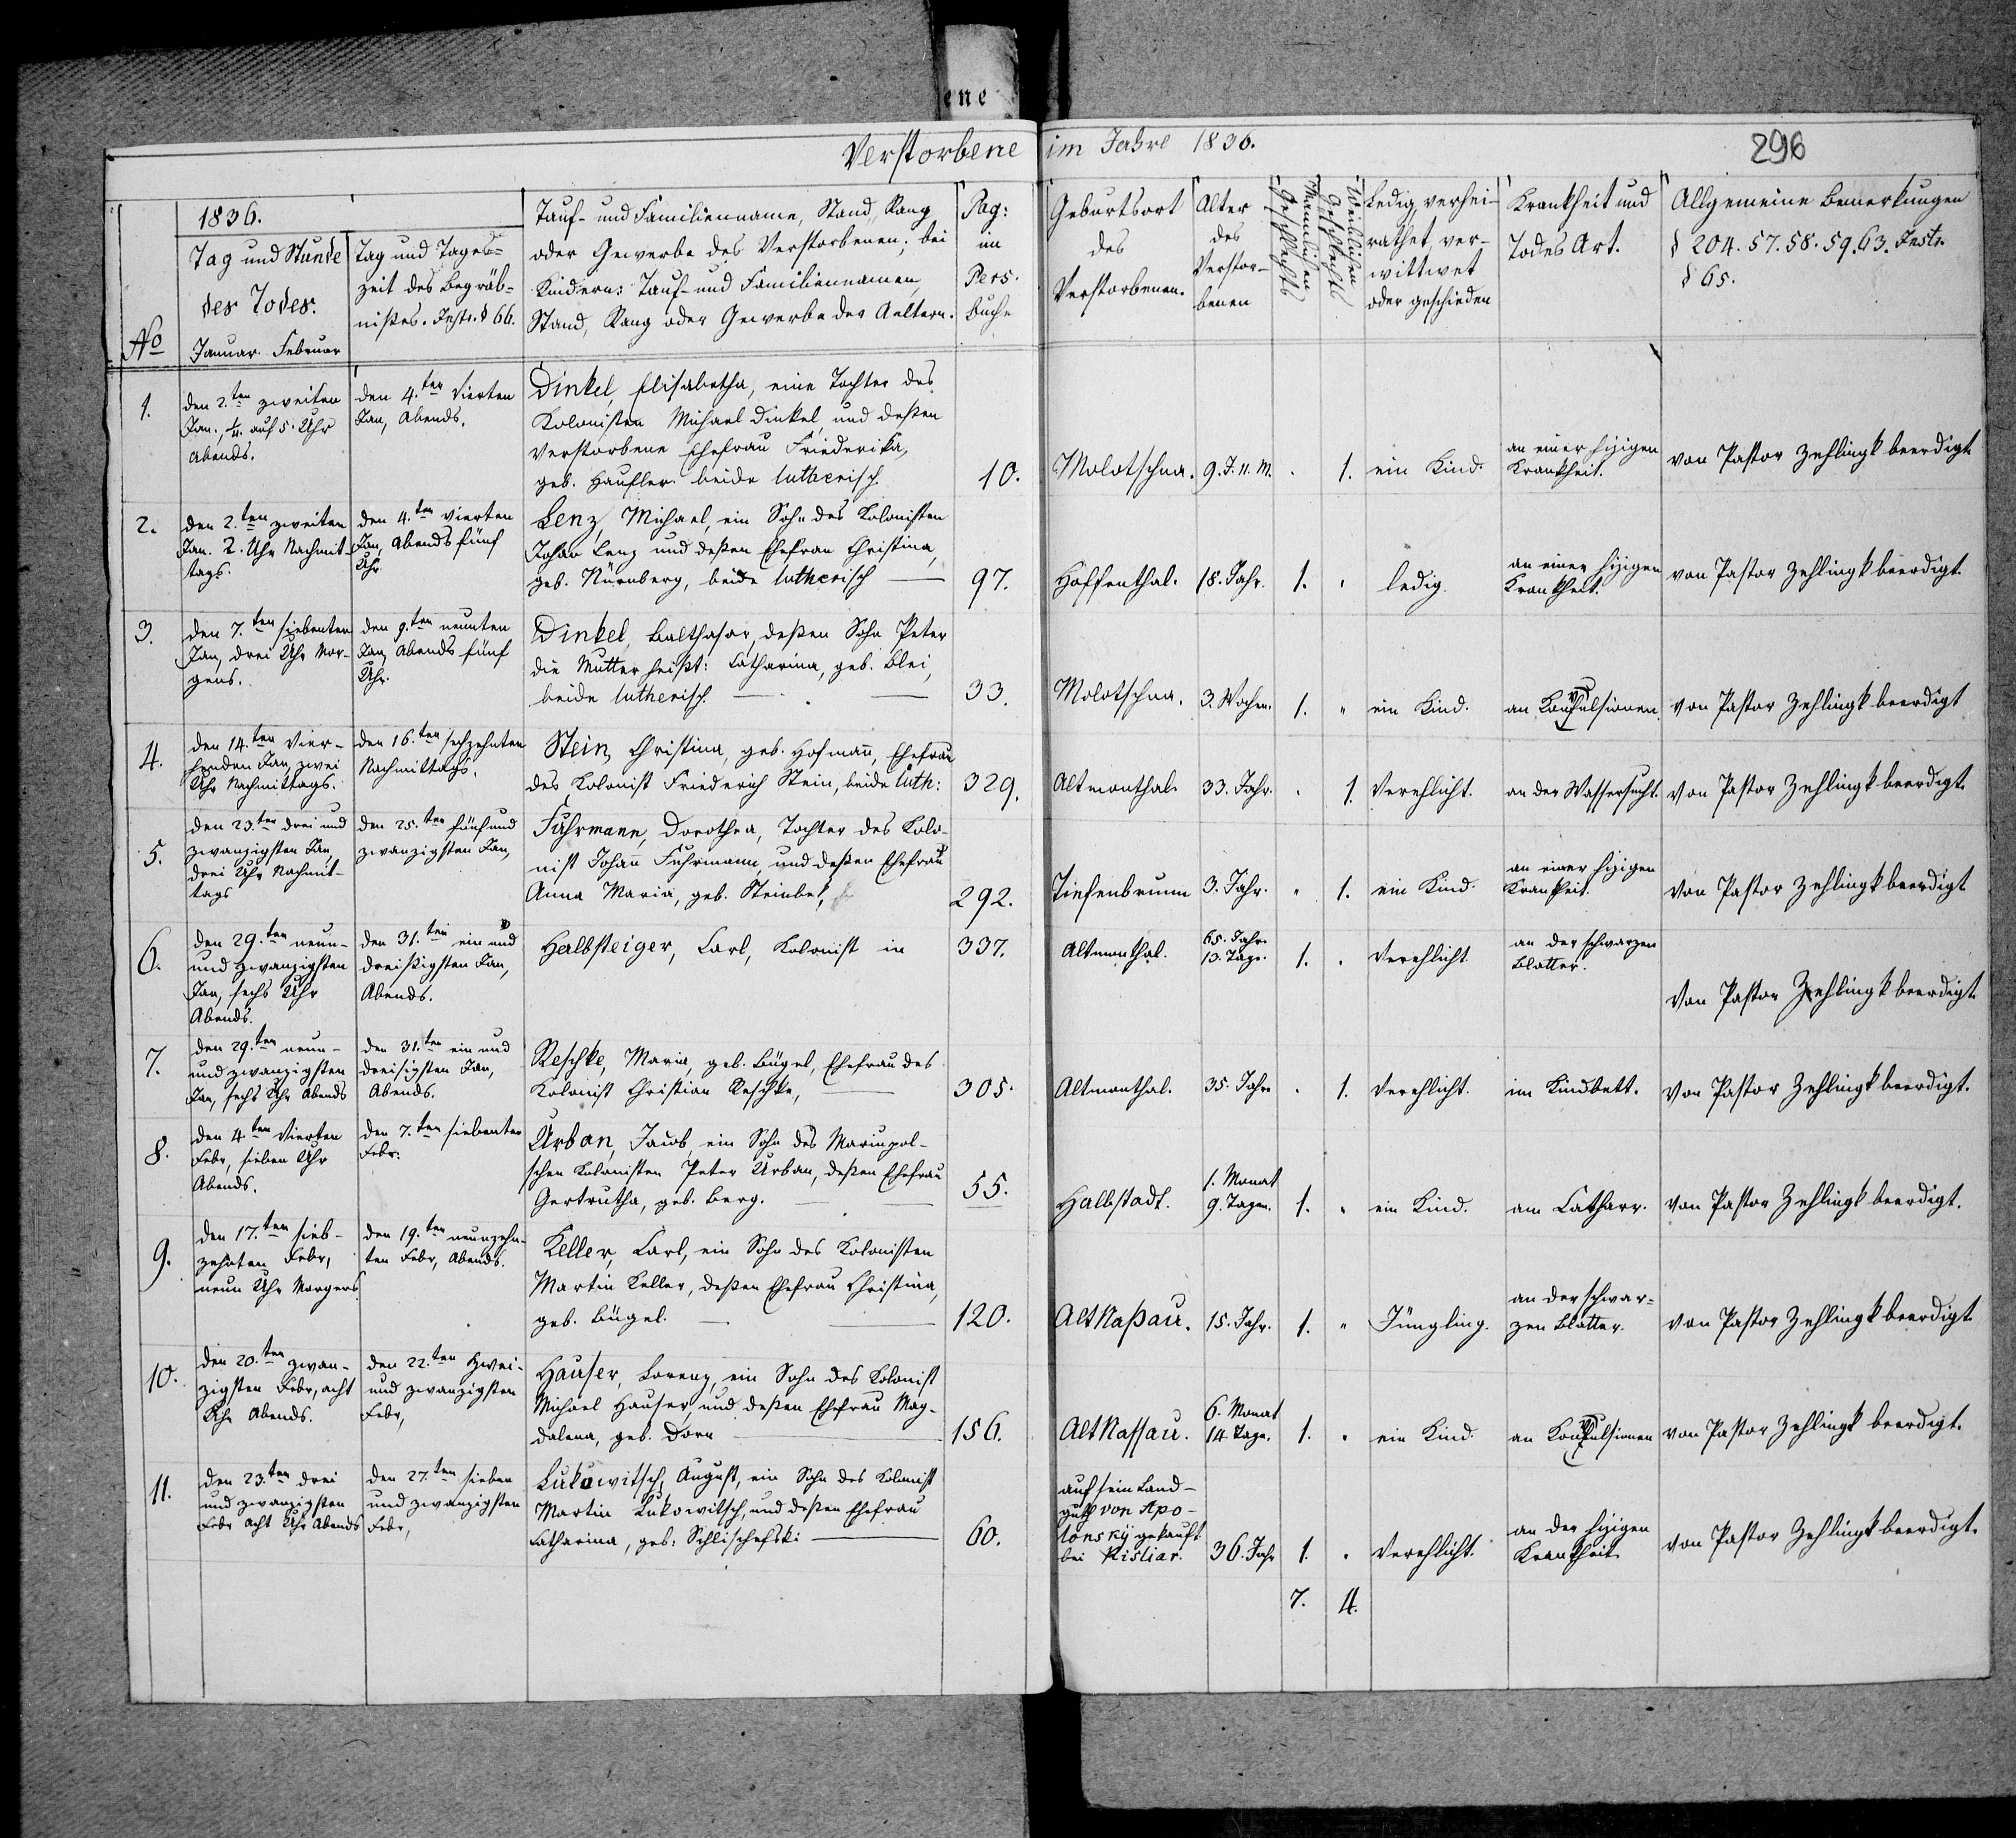 ene
Verstorbene im Jahre 1836.
296
No
1836.
Tag und Stunde
des Todes.
Januar. Februar
Tag und Tages-
zeit des Begräb-
nißes. Instr. § 66.
Tauf- und Familienname, Stand, Rang
oder Gewerbe des Verstorbenen; bei
Kindern: Tauf- und Familiennamen,
Stand, Rang oder Gewerbe der Aeltern.
Pag:
im
Pers.
Buch
Geburtsort
des
Verstorbenen.
Alter
des
Verstor-
benen
Männlichen
Geschlechts
Weiblichen
Geschlechts
Ledig, verhei-
rathet, ver-
wittwet
oder geschieden
Krankheit und
Todes Art.
Allgemeine Bemerkungen
§ 204. 57. 58. 59. 63. Instr.
§ 65.
1.
den 2.ten zweiten
Jan., 1/4. auf 5. Uhr
Abends.
den 4.ten vierten
Jan, Abends.
Dinkel, Elisabetha, eine Tochter des
Kolonisten Michael Dinkel, und deßen
verstorbene Ehefrau Friederika,
geb. Haufler. beide lutherisch.
10.
Molotschna.
9. J. 11. M.
.
1.
ein Kind.
an einer hizigen
Krankheit.
von Pastor Zehlingk beerdigt.
2.
den 2.ten zweiten
Jan. 2. Uhr Nachmit-
tags.
den 4.ten vierten
Jan, Abends fünf
Uhr
Lenz, Michael, ein Sohn des Kolonisten
Johan Lenz und deßen Ehefrau Christina,
geb. Nürnberg, beide lutherisch
97.
Hoffenthal.
18. Jahr.
1.
.
ledig.
an einer hizigen
Krankheit.
von Pastor Zehlingk beerdigt.
3.
den 7.ten siebenten
Jan, drei Uhr Mor-
gens.
den 9.ten neunten
Jan, Abends fünf
Uhr.
Dinkel, Balthasar, deßen Sohn Peter
die Mutter heißt: Catharina, geb. Blei,
beide lutherisch.
33.
Molotschna.
3. Wochen.
1.
"
ein Kind.
an Konvulsionen.
von Pastor Zehlingk beerdigt
4.
den 14.ten Vier-
zenden Jan, zwei
Uhr Nachmittags.
den 16.ten sechzehnten
Nachmittags.
Stein, Christina, geb. Hofmañ, Ehefrau
des Kolonist Friederich Stein, beide luth:
329.
Altmonthal.
33. Jahr.
.
1.
Verehlicht.
an der Wassersucht.
von Pastor Zehlingk beerdigt.
5.
den 23.ten drei und
zwanzigsten Jan,
drei Uhr Nachmit-
tags
den 25.ten fünf und
zwanzigsten Jan,
Fuhrmann, Dorothea, Tochter des Kolo-
nist Johañ Fuhrmann, und deßen Ehefrau
Anna Maria, geb. Steinbek,
292.
Tiefenbrunn
3. Jahr.
"
1.
ein Kind.
an einer hizigen
Krankheit.
von Pastor Zehlingk beerdigt
6.
den 29.ten neun-
und zwanzigsten
Jan, sechs Uhr
Abends.
den 31.ten ein und
dreißigsten Jan,
Abends.
Halbsteiger, Carl, Kolonist in
337.
Altmonthal.
65. Jahr.
13. Tage.
1.
.
Verehlicht.
an der schwarzen
Blatter.
von Pastor Zehlingk beerdigt.
7.
den 29.ten neun-
und zwanzigsten
Jan, sechs Uhr Abends
den 31.ten ein und
dreisigsten Jan,
Abends.
Reschke, Maria, geb. Bügel, Ehefrau des
Kolonist Christian Reschke,
305.
Altmonthal.
35. Jahr
.
1.
Verehlicht.
im Kindbett.
von Pastor Zehlingk beerdigt.
8.
den 4.ten Vierten
Febr, sieben Uhr
Abends.
den 7.ten siebenten
Febr:
Urban, Jacob, ein Sohn des Mariupol-
schen Kolonisten Peter Urban, deßen Ehefrau
Gertrutha, geb. Berg.
55.
Halbstadt.
1. Monat
9. Tagen.
1.
.
ein Kind.
am Catharr.
von Pastor Zehlingk beerdigt.
9.
den 17.ten sieb-
zehnten Febr,
neun Uhr Morgens
den 19.ten neunzehn-
ten Febr, Abends.
Keller, Carl, ein Sohn des Kolonisten
Martin Keller, deßen Ehefrau Christina,
geb. Bügel.
120.
Alt Naßau.
15. Jahr.
1.
"
Jüngling.
an der schwar-
zen Blatter.
von Pastor Zehlingk beerdigt
10.
den 20.ten zwan-
zigsten Febr, acht
Uhr Abends.
den 22.ten Zwei-
und zwanzigsten
Febr,
Hauser, Lorenz, ein Sohn des Kolonist
Michael Hauser, und deßen Ehefrau Mag-
dalena, geb. Dorn
156.
Alt Nassau.
6. Monat
14 Tage.
1.
.
ein Kind.
an Konvulsionen
von Pastor Zehlingk beerdigt.
11.
den 23.ten drei
und zwanzigsten
Febr acht Uhr Abends
den 27.ten sieben
und zwanzigsten
Febr,
Lukowitsch, August, ein Sohn des Kolonist
Martin Lukowitsch, und deßen Ehefrau
Catharina, geb: Schlischefski
60.
auf sein Land-
guth von Apo-
lonsky gekauft
bei Kisliar.
36. Jahr
1.
.
Verehlicht.
an der hizigen
Krankheit
von Pastor Zehlingk beerdigt.
7. 4.